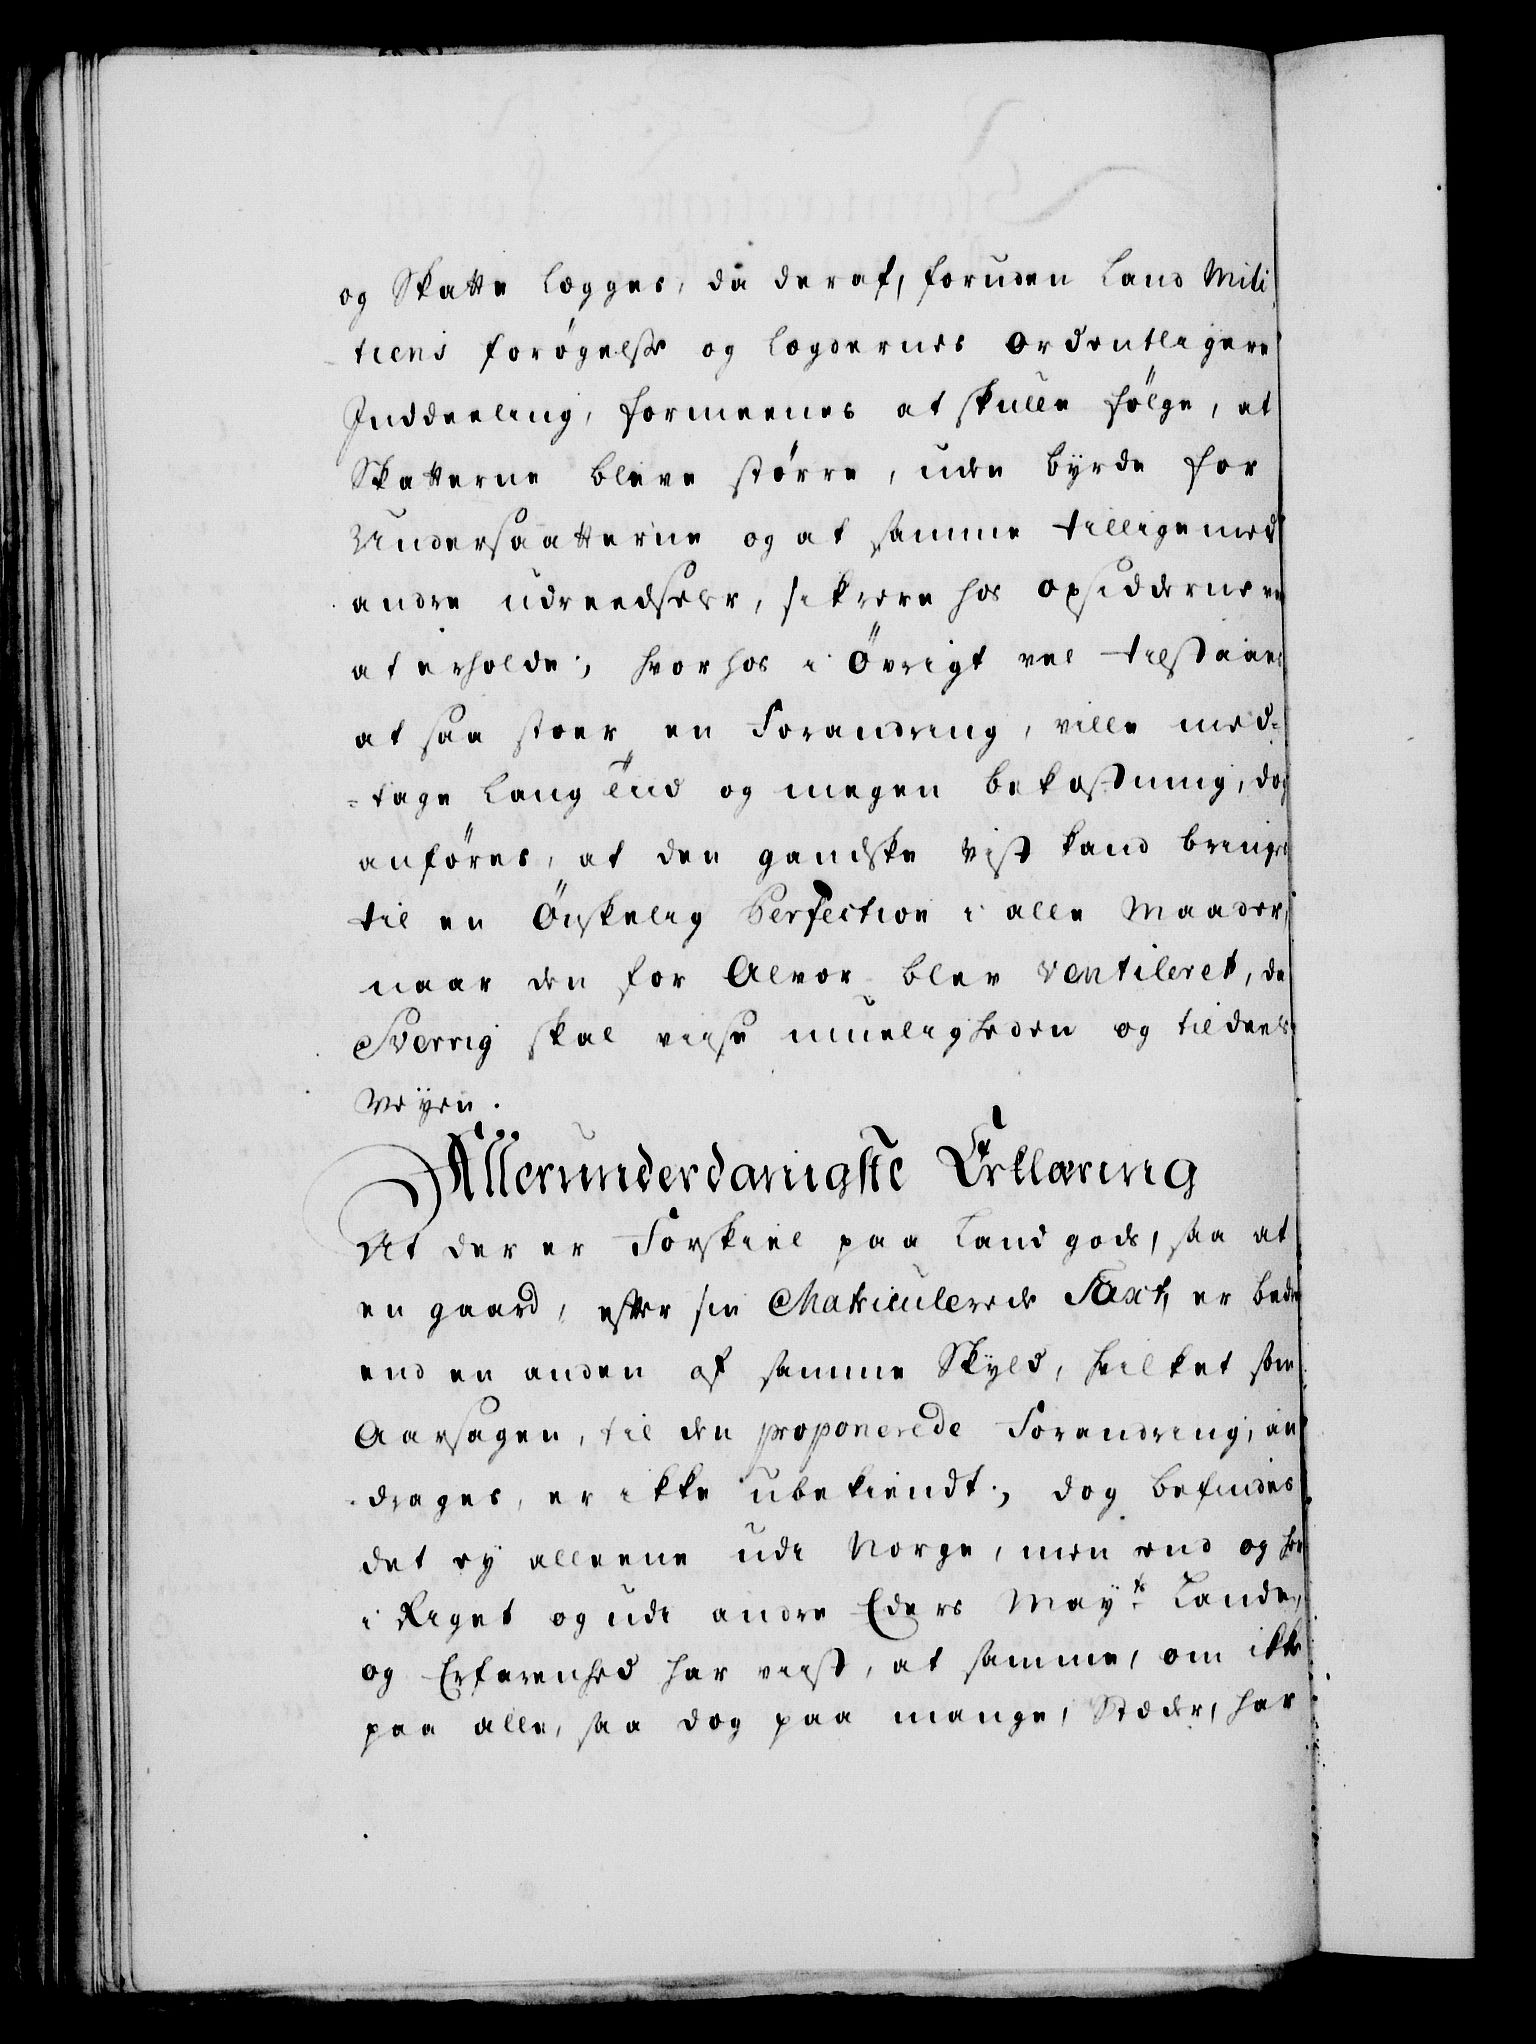 og Skatte lægges, da deraf, foruden Land Mili
tiens forøgelse og Lægdernes ordentligere
Inddeeling, formeenes at skulle følge, at
Skatterne bleve større, uden byrde for
Undersaatterne og at samme tilligemed
andre udreedseler, sikrere hos opsidderne var
at erholde; hvorhos i Øvrigt vel tilstaaes
at saa stoer en Forandring, ville med-
-tage Lang Tiid og megen bekostning, dog
anføres, at den gandske vist kand bringes
til en Ønskelig Perfection i alle Maader,
naar den for Alvor blev ventileret, da
Sverrig skal viise mueligheden og tildeels
Veyen.
Allerunderdanigste Erklæring
At der er Forskiel paa Land gods, saa at
en gaard, efter sin Matriculerede Taxt, er bedre
end en anden af samme Skyld, hvilket som
Aarsagen, til den proponerede Forandring, an
drages, er ikke ubekiendt; dog befindes
det ey alleene udi Norge, men end og her
i Riget og udi andre Eders May.ts Lande,
og Erfarenhed har viist, at samme, om ikke
paa alle, saa dog paa mange, Stæder, har